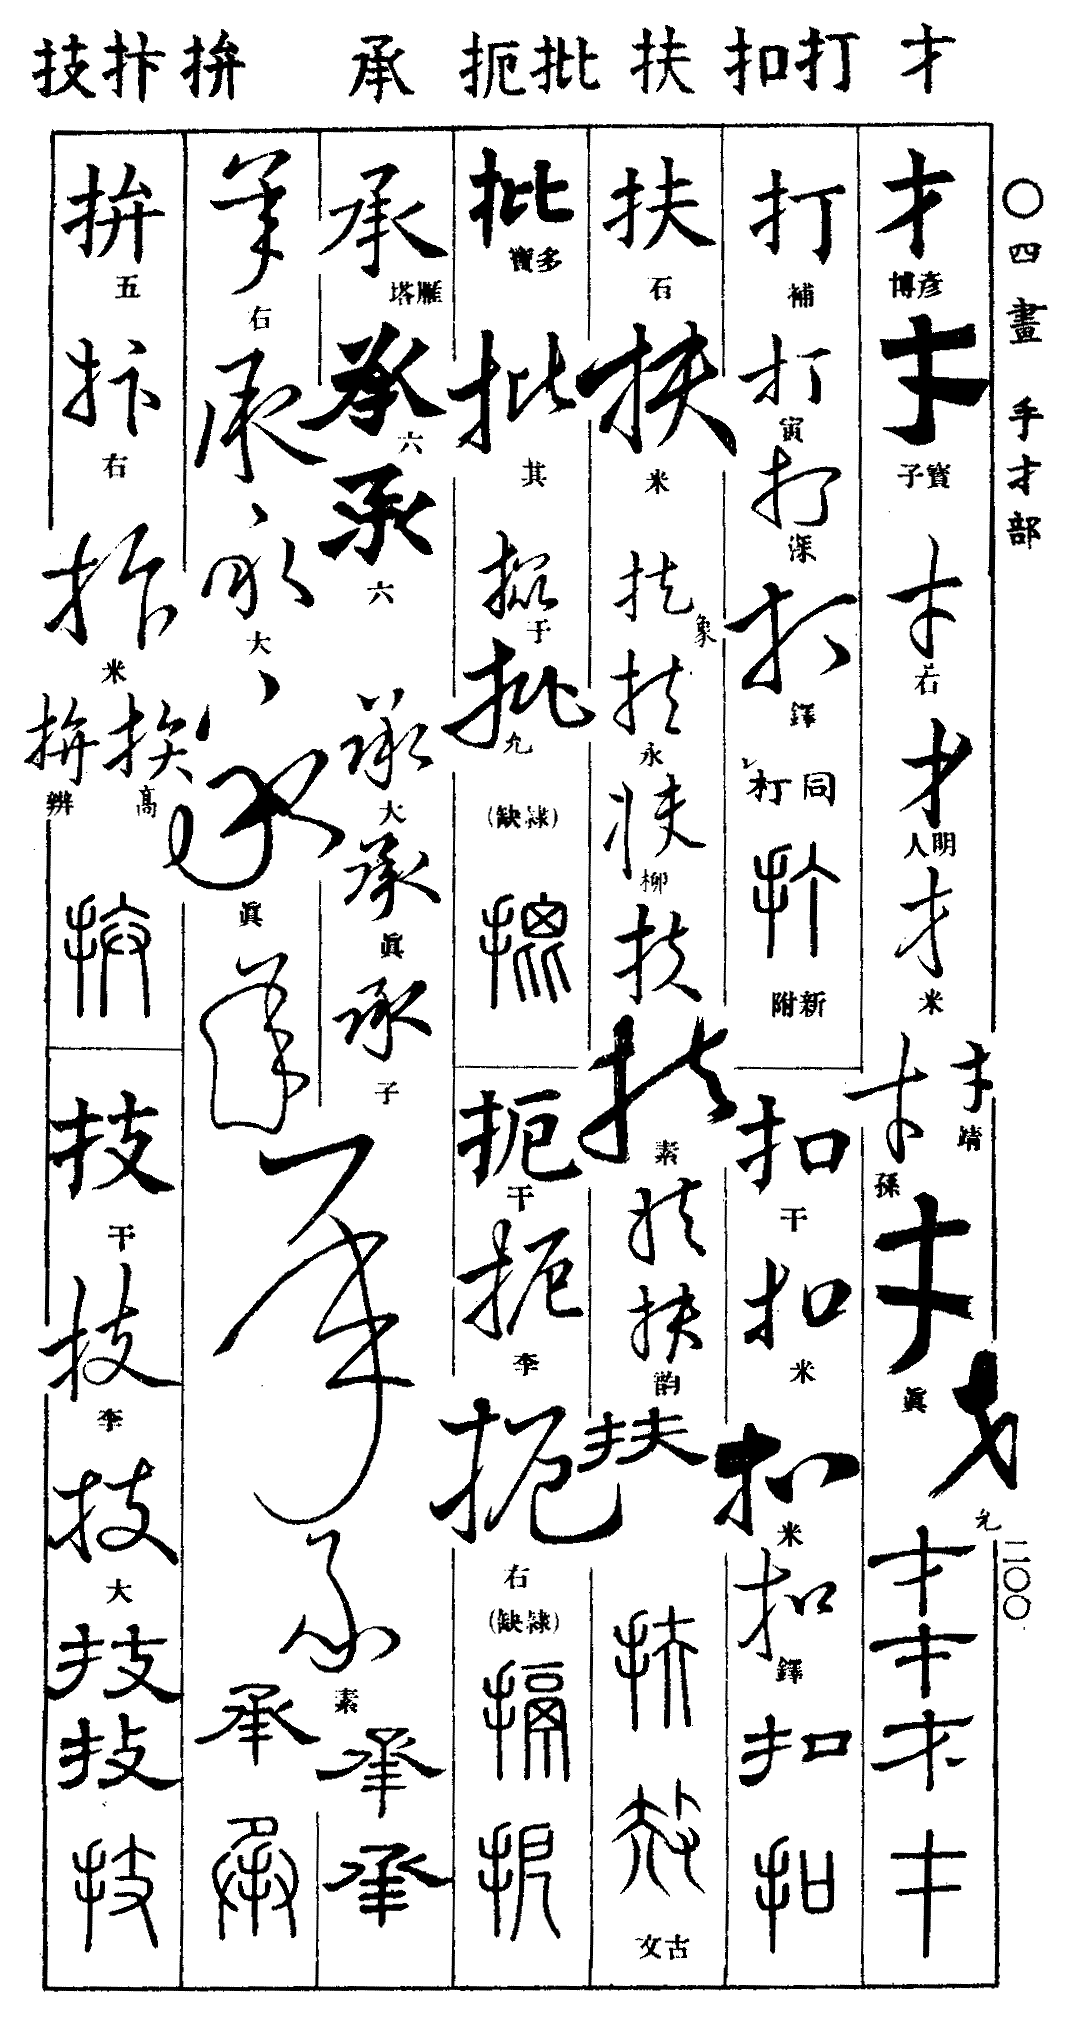 才 打 扣 扶 批 扼 承 拚 抃 技
〇四畫 手才部
二〇〇
才
彥博
才
寶子
才
右
才
明人
才
米
才
靖
才
孫
才
眞
才
允
才
才
才
才
打
補
打
寅
打
深
打
鐸
打 同
打
新附
扣
干
扣
米
扣
米
扣
鐸
扣
扣
扶
石
扶
米
扶
象
扶
永
扶
柳
扶
扶
素
扶
扶
韵
扶
扶
古文
批
多寶
批
其
批
于
批
允
(隸缺)
批
扼
干
扼
李
扼
右
(隸缺)
扼
扼
承
雁塔
承
六
承
六
承
大
承
眞
承
子
承
右
承
承
大
承
眞
承
承
承
素
承
承
承
承
拚
五
抃
右
抃
米
拚
高
拚
辨
拚
技
干
技
李
技
大
技
技
技